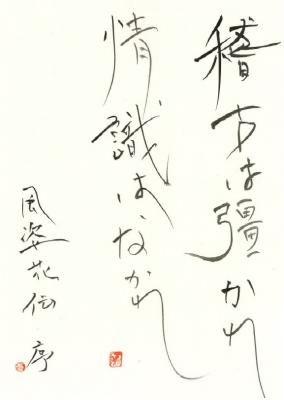 稽古は彊かれ
情識はなかれ
風姿花伝 序